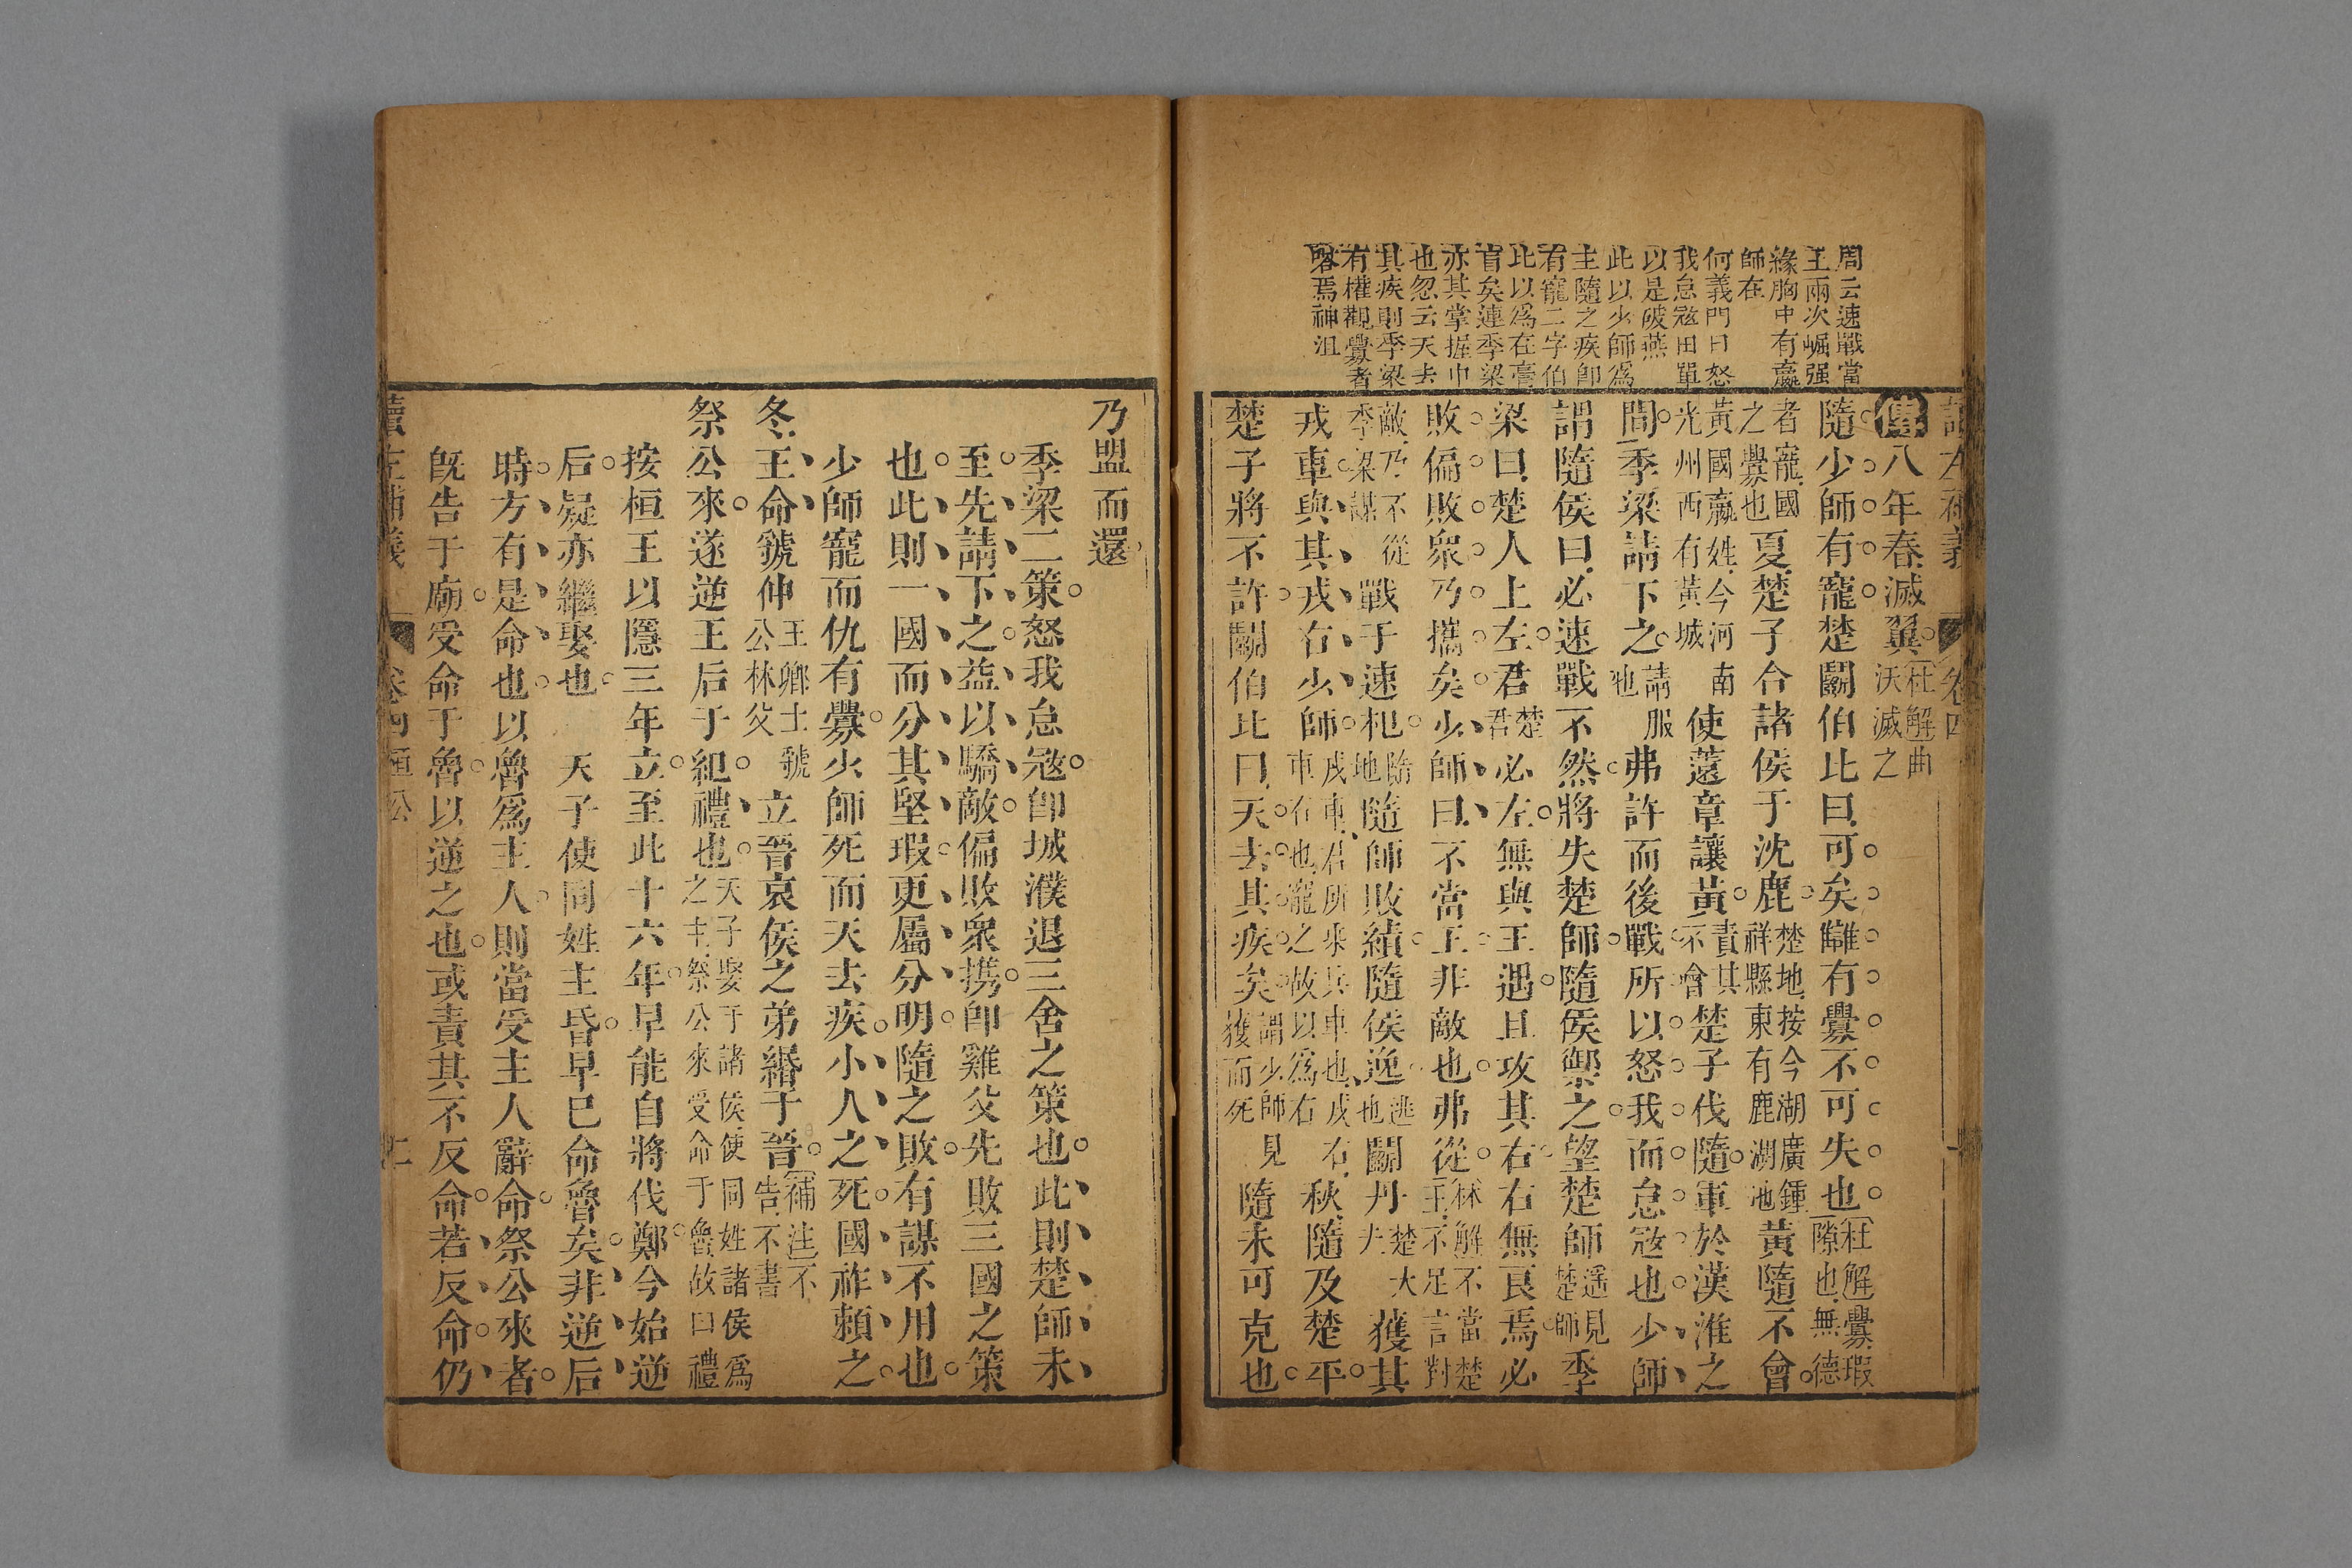 周云速戰當
王兩次崛强
緣胸中有嬴
師在
何義門曰怒
我怠寇田單
以是破燕
此以少師爲
主隨之疾卽
有寵二字伯
比以爲在膏
肓矣連季梁
亦其掌握中
也忽云天去
其疾則季梁
有權觀釁者
畧焉神沮
讀左補義 卷四
傳八年春滅翼杜解曲沃滅之
隨少師有寵楚鬬伯比曰可矣讎有釁不可失也杜解釁瑕隙也無德
者寵國之釁也夏楚子合諸侯于沈鹿楚地按今湖廣鍾祥縣東有鹿湖池黃隨不會
黃國嬴姓今河南光州西有黃城使薳章讓黃責其不會楚子伐隨軍於漢淮之
間季梁請下之請服也弗許而後戰所以怒我而怠寇也少師
謂隨侯曰必速戰不然將失楚師隨侯禦之望楚師遥見楚師季
梁曰楚人上左君楚君必左無與王遇且攻其右右無良焉必
敗偏敗眾乃攜矣少師曰不當王非敵也弗從林解不當楚王不足言對
敵乃不從季梁謀戰于速杞隨地隨師敗績隨侯逸逃也鬬丹楚大夫獲其
戎車與其戎右少師戎車君所乘兵車也戎右車右也寵之故以爲右秋隨及楚平
楚子將不許鬬伯比曰天去其疾矣謂少師見獲而死隨未可克也
乃盟而還
季梁二策怒我怠寇卽城濮退三舍之策也此則楚師未
至先請下之益以驕敵偏敗眾携卽雞父先敗三國之策
也此則一國而分其堅瑕更屬分明隨之敗有謀不用也
少師寵而仇有釁少師死而天去疾小人之死國祚賴之
冬王命虢仲王卿士虢公林父立晉哀侯之弟緡于晉補注不告不書
祭公來遂逆王后于紀禮也天子娶于諸侯使同姓諸侯爲之主祭公來受命于魯故曰禮
按桓王以隱三年立至此十六年早能自將伐鄭今始逆
后疑亦繼娶也 天子使同姓主昏早已命魯矣非逆后
時方有是命也以魯爲主人則當受主人辭命祭公來者
旣告于廟受命于魯以逆之也或責其不反命若反命仍
讀左補義 卷四 桓公